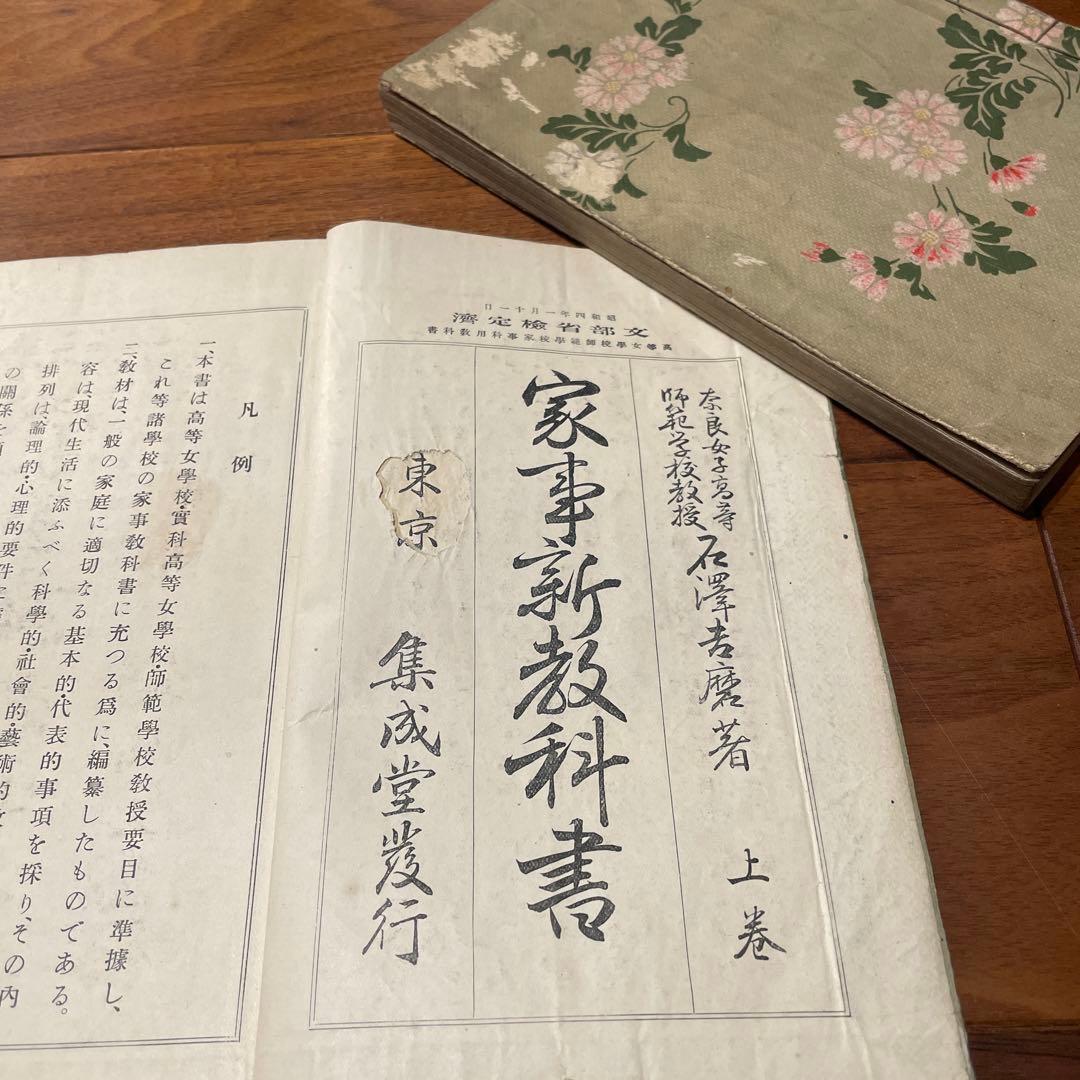 昭和四年一月十一日
文部省檢定濟
高等女學校師範學校家事科用教科書
奈良女子高等
師範学校教授
石澤吉麿著
上巻
家事新教科書
東京
集成堂發行
凡例
一、本書は高等女學校・實科高等女學校・師範學校教授要目に準據し、
これ等諸學校の家事教科書に充つる爲に、編纂したものである。
二、教材は、一般の家庭に適切なる基本的・代表的事項を採り、その內
容は、現代生活に添ふべく科學的・社會的・藝術的
排列は、論理的・心理的要件
の關係